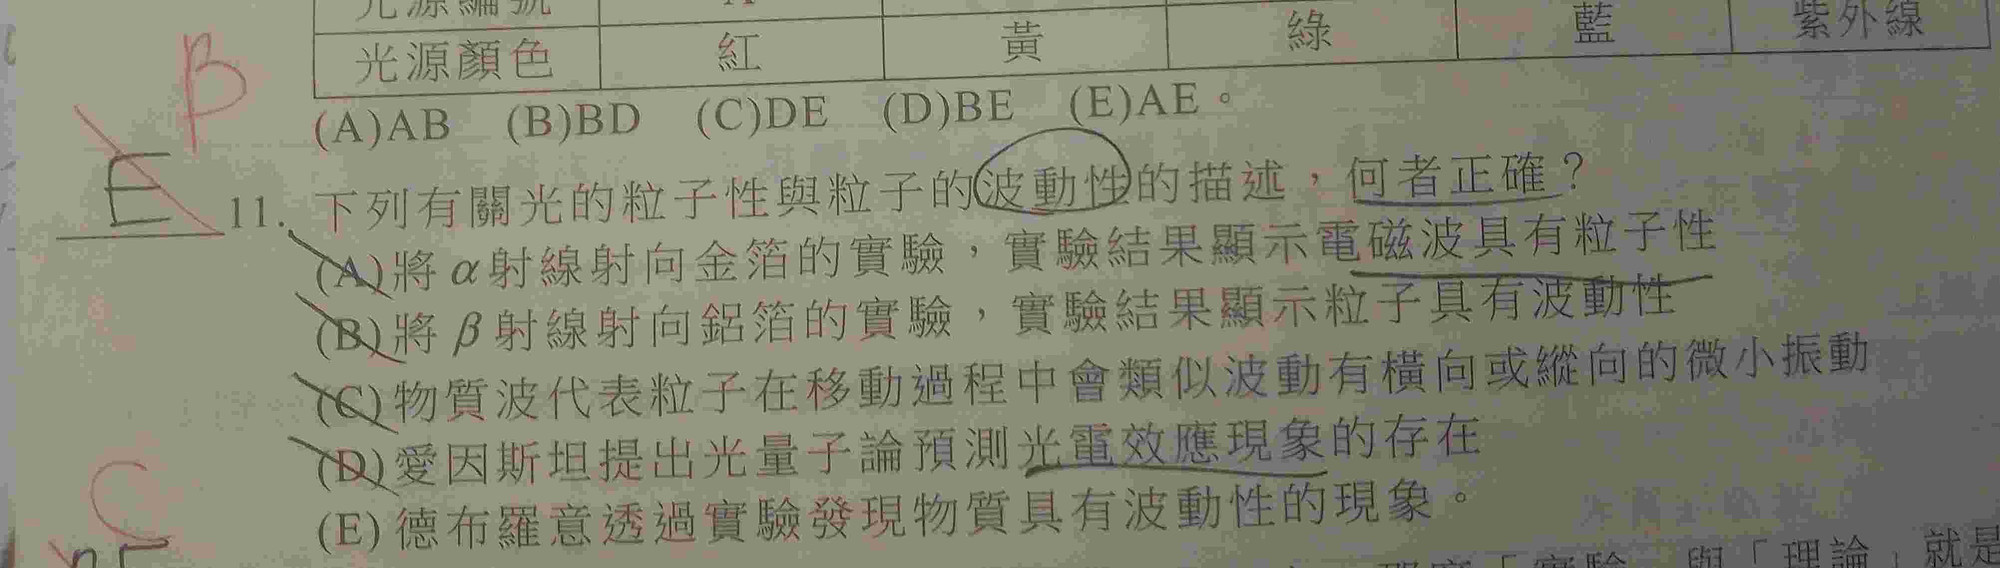 光源編號 A
光源顏色 紅 黃 綠 藍 紫外線
(A)AB (B)BD (C)DE (D)BE (E)AE。
β
E
11. 下列有關光的粒子性與粒子的波動性的描述，何者正確？
(A)將α射線射向金箔的實驗，實驗結果顯示電磁波具有粒子性
(B)將β射線射向鋁箔的實驗，實驗結果顯示粒子具有波動性
(C)物質波代表粒子在移動過程中會類似波動有橫向或縱向的微小振動
(D)愛因斯坦提出光量子論預測光電效應現象的存在
(E)德布羅意透過實驗發現物質具有波動性的現象。
C
「實驗」與「理論」就是